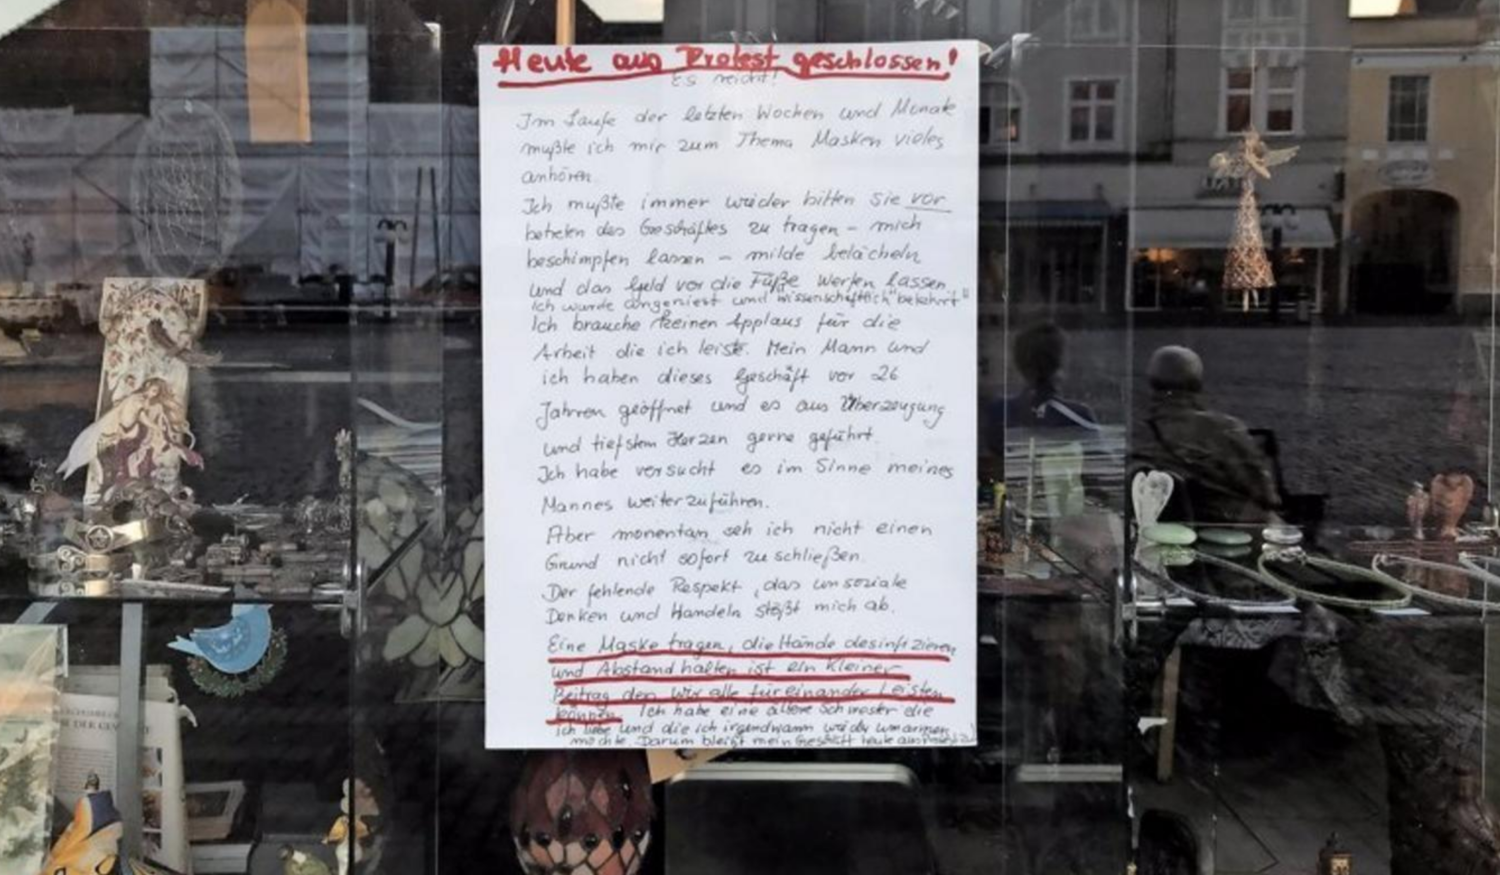 Heute aus Protest geschlossen!
Es reicht!
Im Laufe der letzten Wochen und Monate
mußte ich mir zum Thema Masken vieles
anhören.
Ich mußte immer wieder bitten sie vor
betreten des Geschäftes zu tragen - mich
beschimpfen lassen - milde belächeln
und das Geld vor die Füße werfen lassen
Ich wurde angeniest und "wissenschaftlich" bekehrt"
Ich brauche keinen Applaus für die
Arbeit die ich leiste. Mein Mann und
ich haben dieses Geschäft vor 26
Jahren geöffnet und es aus Überzeugung
und tiefstem Herzen gerne geführt.
Ich habe versucht es im Sinne meines
Mannes weiterzuführen.
Aber momentan seh ich nicht einen
Grund nicht sofort zu schließen.
Der fehlende Respekt, das unsoziale
Denken und Handeln stößt mich ab.
Eine Maske tragen, die Hände desinfizieren
und Abstand halten ist ein kleiner
Beitrag den wir alle füreinander leisten
können. Ich habe eine ältere Schwester die
ich liebe und die ich irgendwann wieder umarmen
möchte. Darum bleibt mein Geschäft heute aus